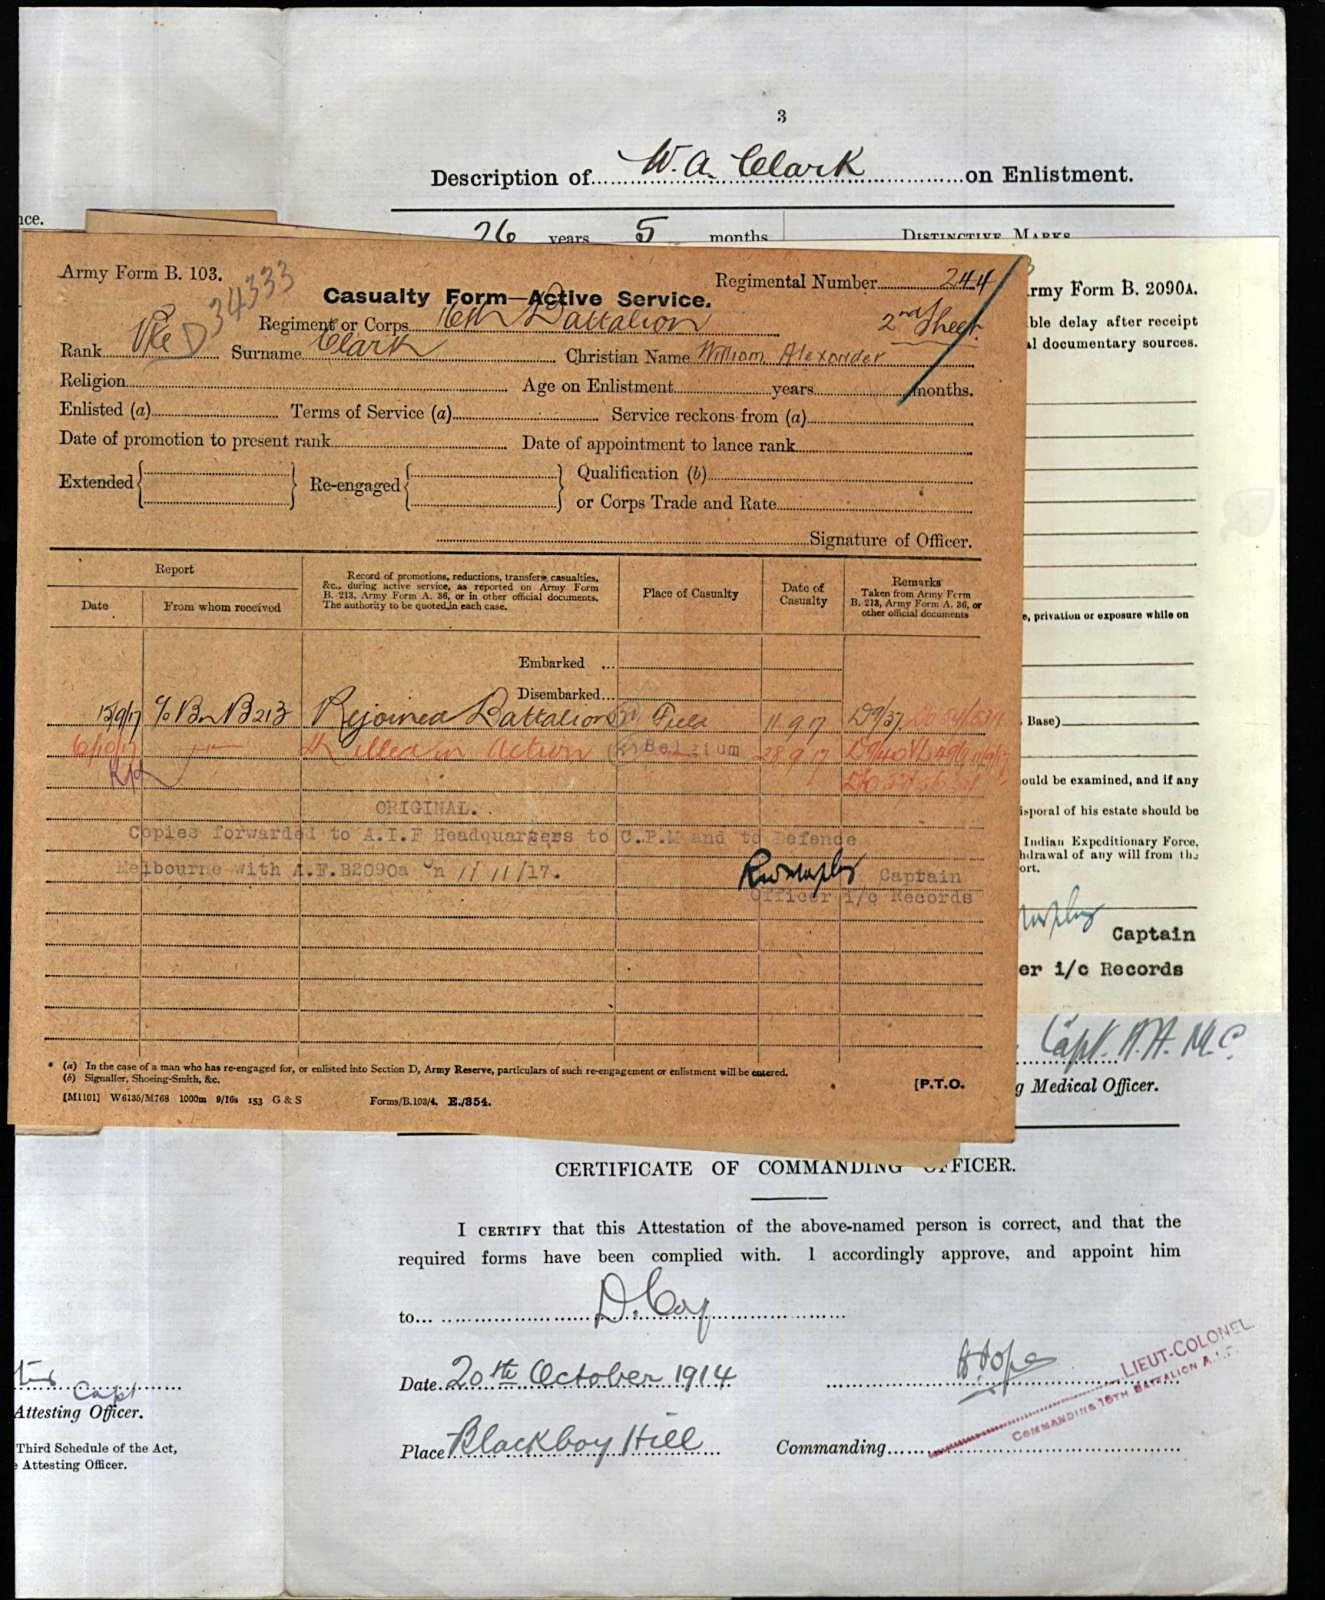 3
Description of W. A. Clark on Enlistment.
nce.
26 years 5 months
DISTINCTIVE MARKS
Army Form B. 103.
34333
Regimental Number 244
Casualty Form—Active Service.
rmy Form B. 2090A.
Regiment or Corps 16th Battalion
2nd Sheet.
ble delay after receipt
al documentary sources.
Rank Pte D Surname Clark Christian Name William Alexander
Religion Age on Enlistment years months.
Enlisted (a) Terms of Service (a) Service reckons from (a)
Date of promotion to present rank Date of appointment to lance rank
Extended Re-engaged Qualification (b)
or Corps Trade and Rate
Signature of Officer.
Report
Date
From whom received
Record of promotions, reductions, transfers, casualties,
&c., during active service, as reported on Army Form
B. 213, Army Form A. 36, or in other official documents.
The authority to be quoted in each case.
Place of Casualty
Date of
Casualty
Remarks
Taken from Army Form
B. 213, Army Form A. 36, or
other official documents
e, privation or exposure while on
Embarked ...
Disembarked...
15/9/17 Bn B213 Rejoined Battalion Field 11.9.17
Base)
6/10/17 Killed in Action Belgium 28.9.17
ould be examined, and if any
ORIGINAL.
isposal of his estate should be
Copies forwarded to A.I.F Headquarters to C.P.M and to Defence
Melbourne with A.F.B2090a on 11/11/17.
Indian Expeditionary Force.
hdrawal of any will from the
ort.
Captain
Officer i/c Records
Captain
er i/c Records
Capt. A.A.M.C.
g Medical Officer.
(a) In the case of a man who has re-engaged for, or enlisted into Section D, Army Reserve, particulars of such re-engagement or enlistment will be entered.
(b) Signaller, Shoeing-Smith, &c.
[P.T.O.
[M1101] W6135/M768 1000m 9/16s 153 G & S Forms/B.103/4. E./354.
CERTIFICATE OF COMMANDING OFFICER.
I CERTIFY that this Attestation of the above-named person is correct, and that the
required forms have been complied with. I accordingly approve, and appoint him
to D. Coy
Date 20th October 1914
LIEUT-COLONEL.
COMMANDING 16TH BATTALION A.I.F.
Place Blackboy Hill Commanding
Capt
Attesting Officer.
Third Schedule of the Act,
e Attesting Officer.